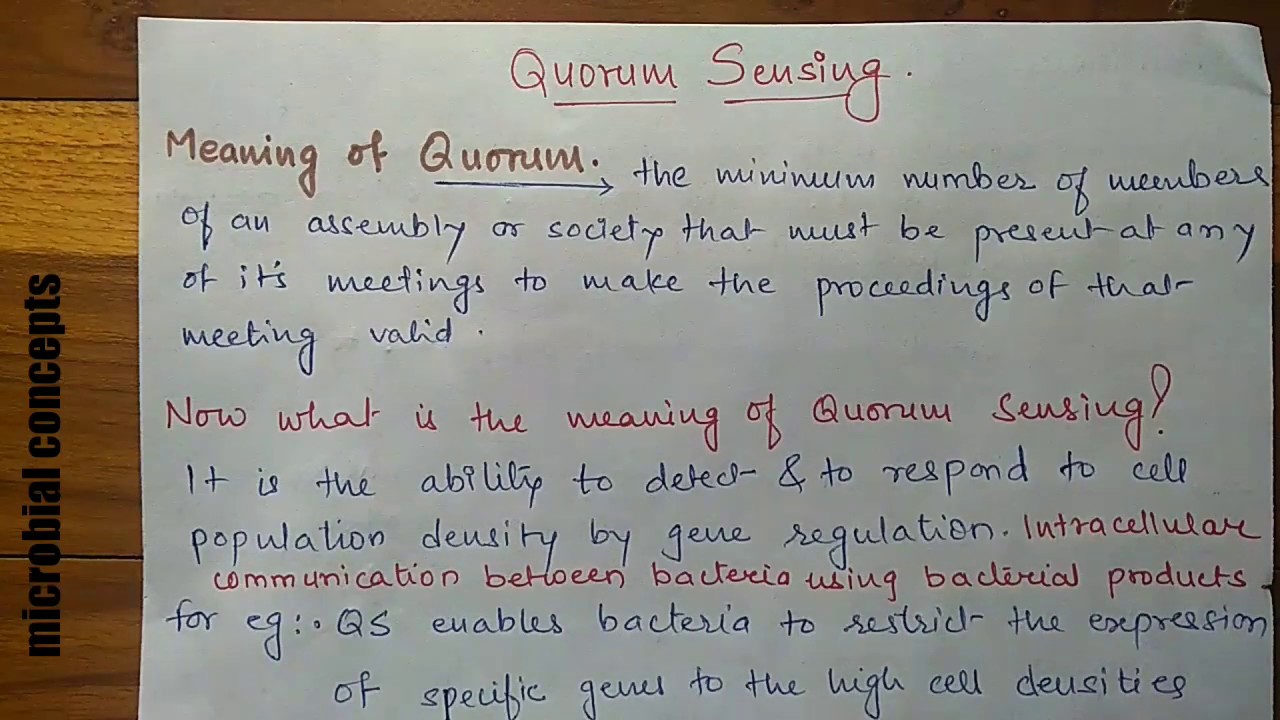 Quorum Sensing.
Meaning of Quorum. → the minimum number of members
of an assembly or society that must be present at any
of it's meetings to make the proceedings of that
meeting valid.
Now what is the meaning of Quorum Sensing?
It is the ability to detect & to respond to cell
population density by gene regulation. Intracellular
communication between bacteria using bacterial products
for eg:• QS enables bacteria to restrict the expression
of specific genes to the high cell densities
microbial concepts